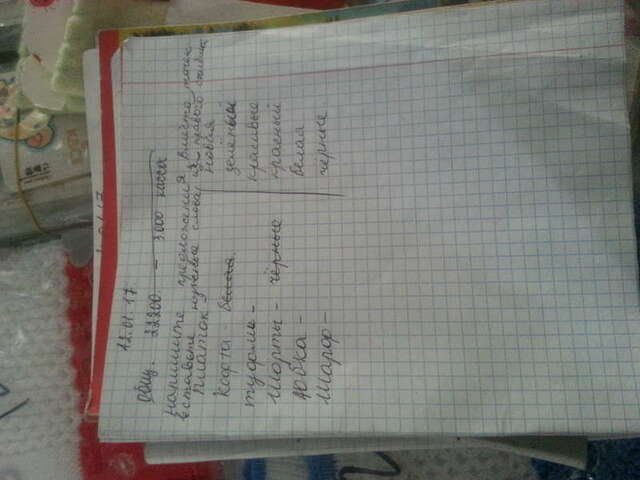 12.01.17
Общ. 22200 — 3000 касса
Напишите предложения, вместо точек
вставьте нужные слова из правого столбика
Платок
новая
Кофта - белая.
зелёный
туфли -
красивые
Шорты - чёрные
красный
Юбка -
белая
Шарф -
чёрные